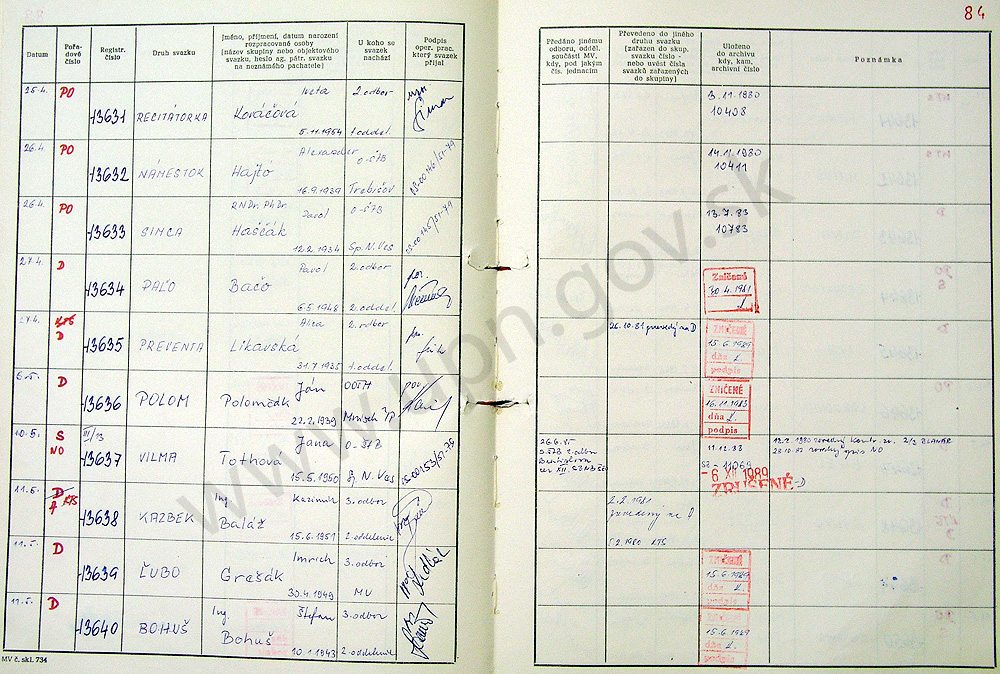 84
Datum
Pořadové číslo
Registr. číslo
Druh svazku
Jméno, příjmení, datum narození rozpracované osoby (název skupiny nebo objektového svazku, heslo ag. pátr. svazku na neznámého pachatele)
U koho se svazek nachází
Podpis oper. prac. který svazek přijal
Předáno jinému odboru, odděl. součásti MV, kdy, pod jakým čís. jednacím
Převedeno do jiného druhu svazku (zařazen do skup. svazku číslo - nebo uvést čísla svazků zařazených do skupiny)
Uloženo do archivu kdy, kam, archivní číslo
Poznámka
25.4. PO 13631 RECITÁTORKA Iveta Kováčová 5.11.1954 2. odbor 1. oddel.
3.11.1980
10408
26.4. PO 13632 NÁMESTOK Alexander Hajtó 16.9.1939 O-ŠTB Trebišov
14.11.1980
10411
26.4. PO 13633 SIMCA RNDr. PhDr. Pavol Haščák 12.2.1934 O-ŠTB Sp. N. Ves
13.7.83
10783
27.4. D 13634 PAĽO Pavol Bačo 6.5.1948 2. odbor 2. oddel.
Zničené
30.4.1981
D 13635 PREVENTA Alica Likavská 31.7.1935 2. odbor 1. oddel.
26.10.81 prevedený na D
ZNIČENÉ
15.6.1989
dňa
podpis
D 13636 POLOM Ján Polomčák 22.2.1939
ZNIČENÉ
16.11.1983
dňa
podpis
10.5. S NO III/13 13637 VILMA Jana Tothová 15.5.1950 O-ŠTB Sp N. Ves
11.12.88
- 6 XII 1989
ZRUŠENÉ
11.5. 13638 KAZBEK Ing Kazimír Baláž 15.6.1951 3. odbor 2. oddelenie
2.2.1981
prevedený na D
11.5. D 13639 ĽUBO Imrich Grešák 30.4.1949 3. odbor MV
ZNIČENÉ
15.6.1989
dňa
podpis
11.5. D 13640 BOHUŠ Ing Štefan Bohuš 10.1.1943 3. odbor 2. oddelenie
ZNIČENÉ
15.6.1989
dňa
podpis
MV č. skl. 734
www.upn.gov.sk